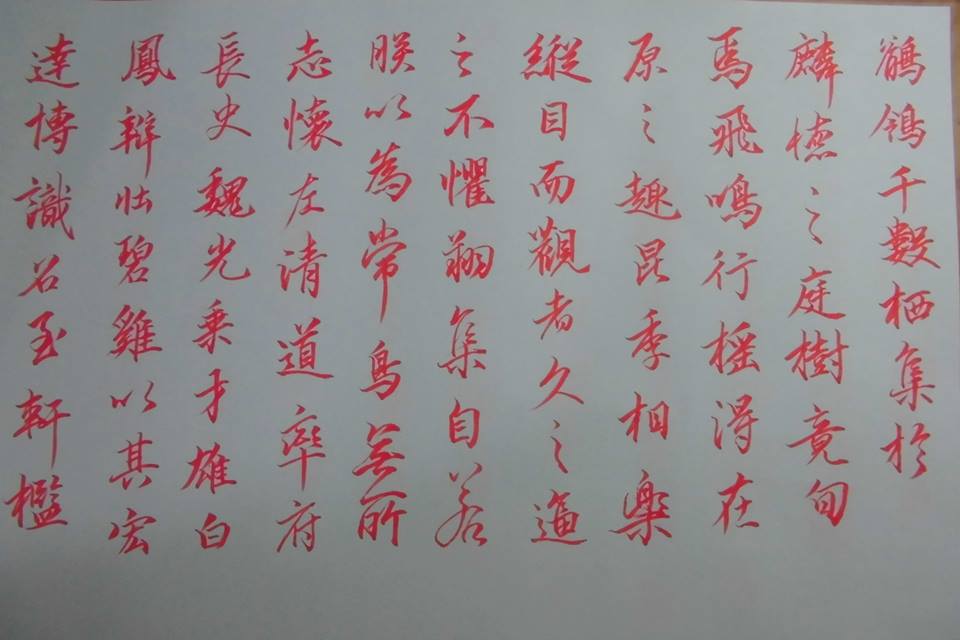 鶺鴒千數栖集於
麟德之庭樹竟旬
焉飛鳴行搖得在
原之趣昆季相樂
縱目而觀者久之逼
之不懼翔集自若
朕以為常鳥無所
志懷左清道率府
長史魏光乗才雄白
鳳辯壯碧雞以其宏
達博識召至軒檻